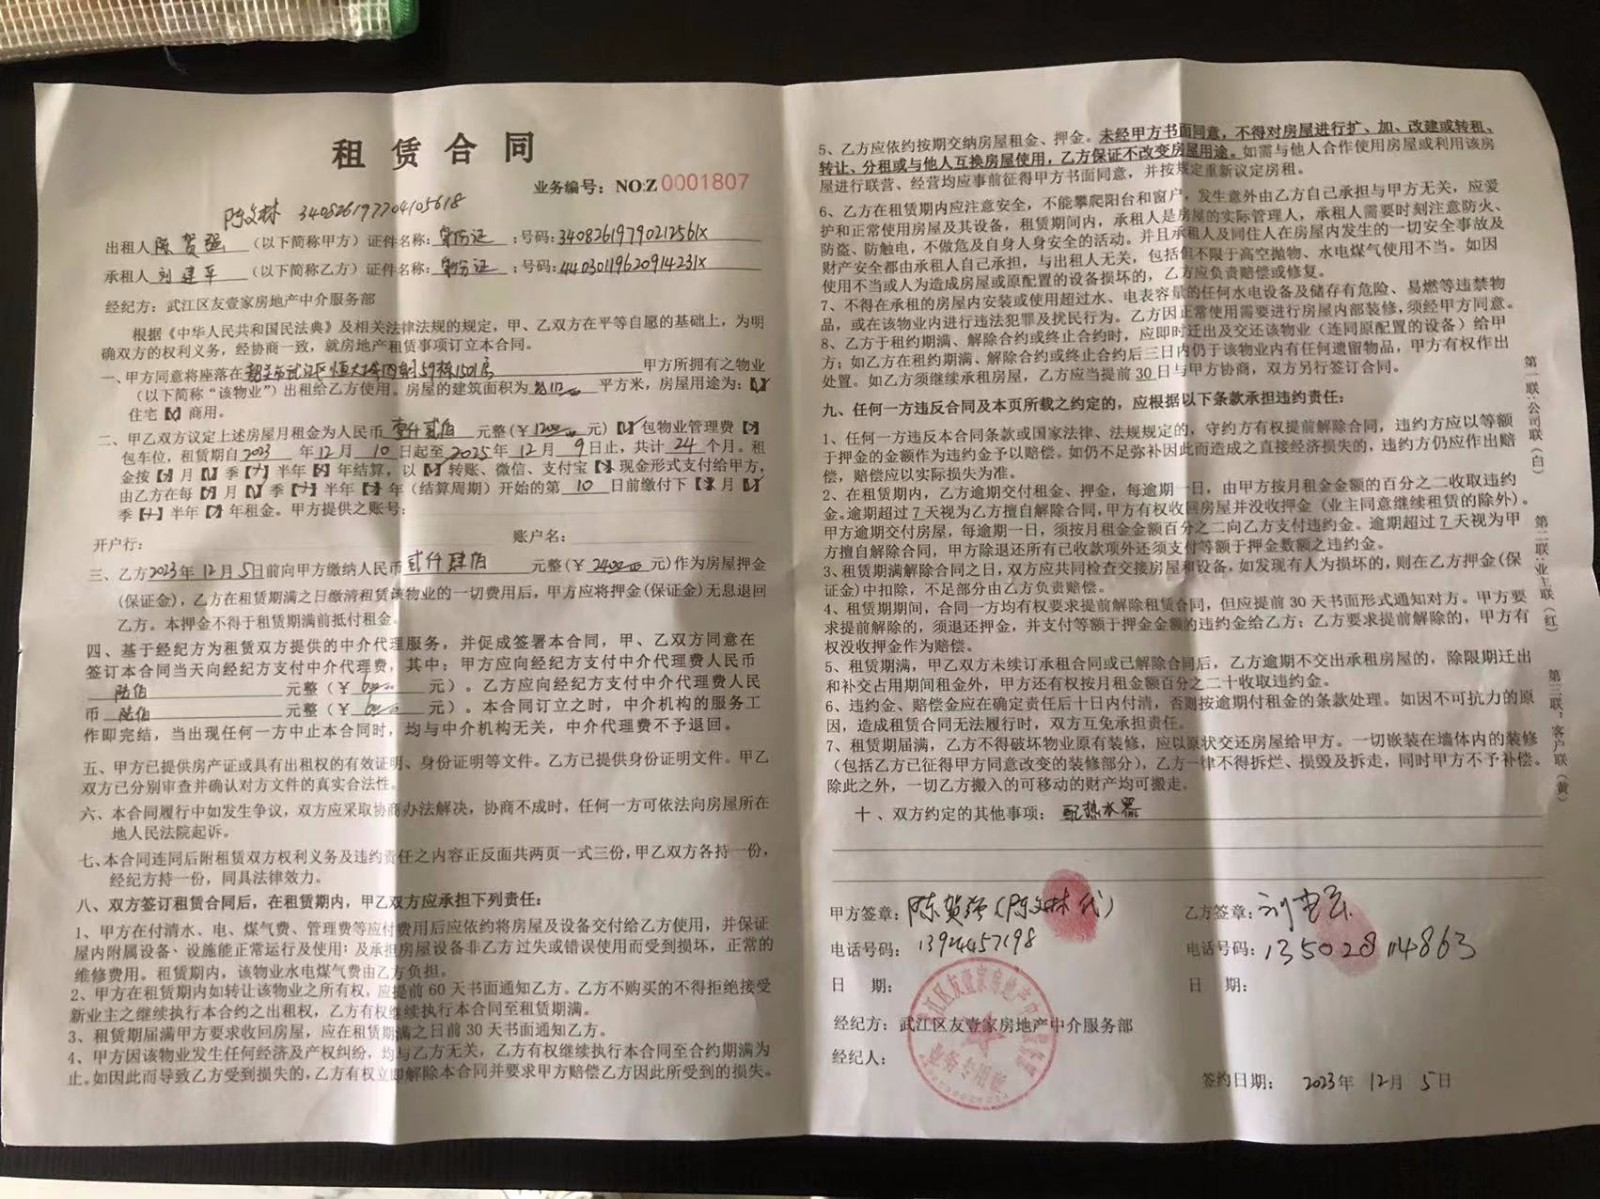 租赁合同
业务编号：NO:Z 0001807
陈文林 340826197704105618
出租人陈贺强（以下简称甲方）证件名称：身份证；号码：34082619790212561X
承租人刘建军（以下简称乙方）证件名称：身份证；号码：44030119620914231X
经纪方：武江区友壹家房地产中介服务部
根据《中华人民共和国民法典》及相关法律法规的规定，甲、乙双方在平等自愿的基础上，为明
确双方的权利义务，经协商一致，就房地产租赁事项订立本合同。
一、甲方同意将座落在韶关市武江区恒大城59栋1501房甲方所拥有之物业
（以下简称“该物业”）出租给乙方使用。房屋的建筑面积为 平方米，房屋用途为：【✓】
住宅【】商用。
二、甲乙双方议定上述房屋月租金为人民币壹仟贰佰元整(￥1200元)【】包物业管理费【】
包车位，租赁期自2023年12月10日起至2025年12月9日止，共计24个月。租
金按【】月【】季【】半年【】年结算，以【】转账、微信、支付宝【】现金形式支付给甲方，
由乙方在每【】月【】季【】半年【】年（结算周期）开始的第10日前缴付下【】月【】
季【】半年【】年租金。甲方提供之账号：
开户行： 账户名：
三、乙方2023年12月5日前向甲方缴纳人民币贰仟肆佰元整(￥2400元)作为房屋押金
(保证金)，乙方在租赁期满之日缴清租赁该物业的一切费用后，甲方应将押金(保证金)无息退回
乙方。本押金不得于租赁期满前抵付租金。
四、基于经纪方为租赁双方提供的中介代理服务，并促成签署本合同，甲、乙双方同意在
签订本合同当天向经纪方支付中介代理费，其中：甲方应向经纪方支付中介代理费人民币
陆佰元整（￥600元）。乙方应向经纪方支付中介代理费人民
币陆佰元整（￥600元）。本合同订立之时，中介机构的服务工
作即完结，当出现任何一方中止本合同时，均与中介机构无关，中介代理费不予退回。
五、甲方已提供房产证或具有出租权的有效证明、身份证明等文件。乙方已提供身份证明文件。甲乙
双方已分别审查并确认对方文件的真实合法性。
六、本合同履行中如发生争议，双方应采取协商办法解决，协商不成时，任何一方可依法向房屋所在
地人民法院起诉。
七、本合同连同后附租赁双方权利义务及违约责任之内容正反面共两页一式三份，甲乙双方各持一份，
经纪方持一份，同具法律效力。
八、双方签订租赁合同后，在租赁期内，甲乙双方应承担下列责任：
1、甲方在付清水、电、煤气费、管理费等应付费用后应依约将房屋及设备交付给乙方使用，并保证
屋内附属设备、设施能正常运行及使用；及承担房屋设备非乙方过失或错误使用而受到损坏，正常的
维修费用。租赁期内，该物业水电煤气费由乙方负担。
2、甲方在租赁期内如转让该物业之所有权，应提前60天书面通知乙方。乙方不购买的不得拒绝接受
新业主之继续执行本合约之出租权，乙方有权继续执行本合同至租赁期满。
3、租赁期届满甲方要求收回房屋，应在租赁期满之日前30天书面通知乙方。
4、甲方因该物业发生任何经济及产权纠纷，均与乙方无关，乙方有权继续执行本合同至合约期满为
止。如因此而导致乙方受到损失的，乙方有权立即解除本合同并要求甲方赔偿乙方因此所受到的损失。
5、乙方应依约按期交纳房屋租金、押金。未经甲方书面同意，不得对房屋进行扩、加、改建或转租、
转让、分租或与他人互换房屋使用，乙方保证不改变房屋用途。如需与他人合作使用房屋或利用该房
屋进行联营、经营均应事前征得甲方书面同意，并按规定重新议定房租。
6、乙方在租赁期内应注意安全，不能攀爬阳台和窗户，发生意外由乙方自己承担与甲方无关，应爱
护和正常使用房屋及其设备，租赁期间内，承租人是房屋的实际管理人，承租人需要时刻注意防火、
防盗、防触电，不做危及自身人身安全的活动。并且承租人及同住人在房屋内发生的一切安全事故及
财产安全都由承租人自己承担，与出租人无关，包括但不限于高空抛物、水电煤气使用不当。如因
使用不当或人为造成房屋或原配置的设备损坏的，乙方应负责赔偿或修复。
7、不得在承租的房屋内安装或使用超过水、电表容量的任何水电设备及储存有危险、易燃等违禁物
品，或在该物业内进行违法犯罪及扰民行为。乙方因正常使用需要进行房屋内部装修，须经甲方同意。
8、乙方于租约期满、解除合约或终止合约时，应即时迁出及交还该物业（连同原配置的设备）给甲
方；如乙方在租约期满、解除合约或终止合约后三日内仍于该物业内有任何遗留物品，甲方有权作出
处置。如乙方须继续承租房屋，乙方应当提前30日与甲方协商，双方另行签订合同。
九、任何一方违反合同及本页所载之约定的，应根据以下条款承担违约责任：
1、任何一方违反本合同条款或国家法律、法规规定的，守约方有权提前解除合同，违约方应以等额
于押金的金额作为违约金予以赔偿。如仍不足弥补因此而造成之直接经济损失的，违约方仍应作出赔
偿，赔偿应以实际损失为准。
2、在租赁期内，乙方逾期交付租金、押金，每逾期一日，由甲方按月租金金额的百分之二收取违约
金。逾期超过7天视为乙方擅自解除合同，甲方有权收回房屋并没收押金（业主同意继续租赁的除外）。
甲方逾期交付房屋，每逾期一日，须按月租金金额百分之二向乙方支付违约金。逾期超过7天视为甲
方擅自解除合同，甲方除退还所有已收款项外还须支付等额于押金数额之违约金。
3、租赁期满解除合同之日，双方应共同检查交接房屋和设备，如发现有人为损坏的，则在乙方押金(保
证金)中扣除，不足部分由乙方负责赔偿。
4、租赁期期间，合同一方均有权要求提前解除租赁合同，但应提前30天书面形式通知对方。甲方要
求提前解除的，须退还押金，并支付等额于押金金额的违约金给乙方；乙方要求提前解除的，甲方有
权没收押金作为赔偿。
5、租赁期满，甲乙双方未续订承租合同或已解除合同后，乙方逾期不交出承租房屋的，除限期迁出
和补交占用期间租金外，甲方还有权按月租金额百分之二十收取违约金。
6、违约金、赔偿金应在确定责任后十日内付清，否则按逾期付租金的条款处理。如因不可抗力的原
因，造成租赁合同无法履行时，双方互免承担责任。
7、租赁期届满，乙方不得破坏物业原有装修，应以原状交还房屋给甲方。一切嵌装在墙体内的装修
（包括乙方已征得甲方同意改变的装修部分），乙方一律不得拆烂、损毁及拆走，同时甲方不予补偿。
除此之外，一切乙方搬入的可移动的财产均可搬走。
十、双方约定的其他事项：配热水器
甲方签章：陈贺强（陈文林代）
电话号码：13924457198
日 期：
经纪方：武江区友壹家房地产中介服务部
经纪人：
乙方签章：刘建军
电话号码：13502814863
日 期：
签约日期：2023年12月5日
武江区友壹家房地产中介服务部
业务专用章
第一联：公司联（白）
第二联：业主联（红）
第三联：客户联（黄）